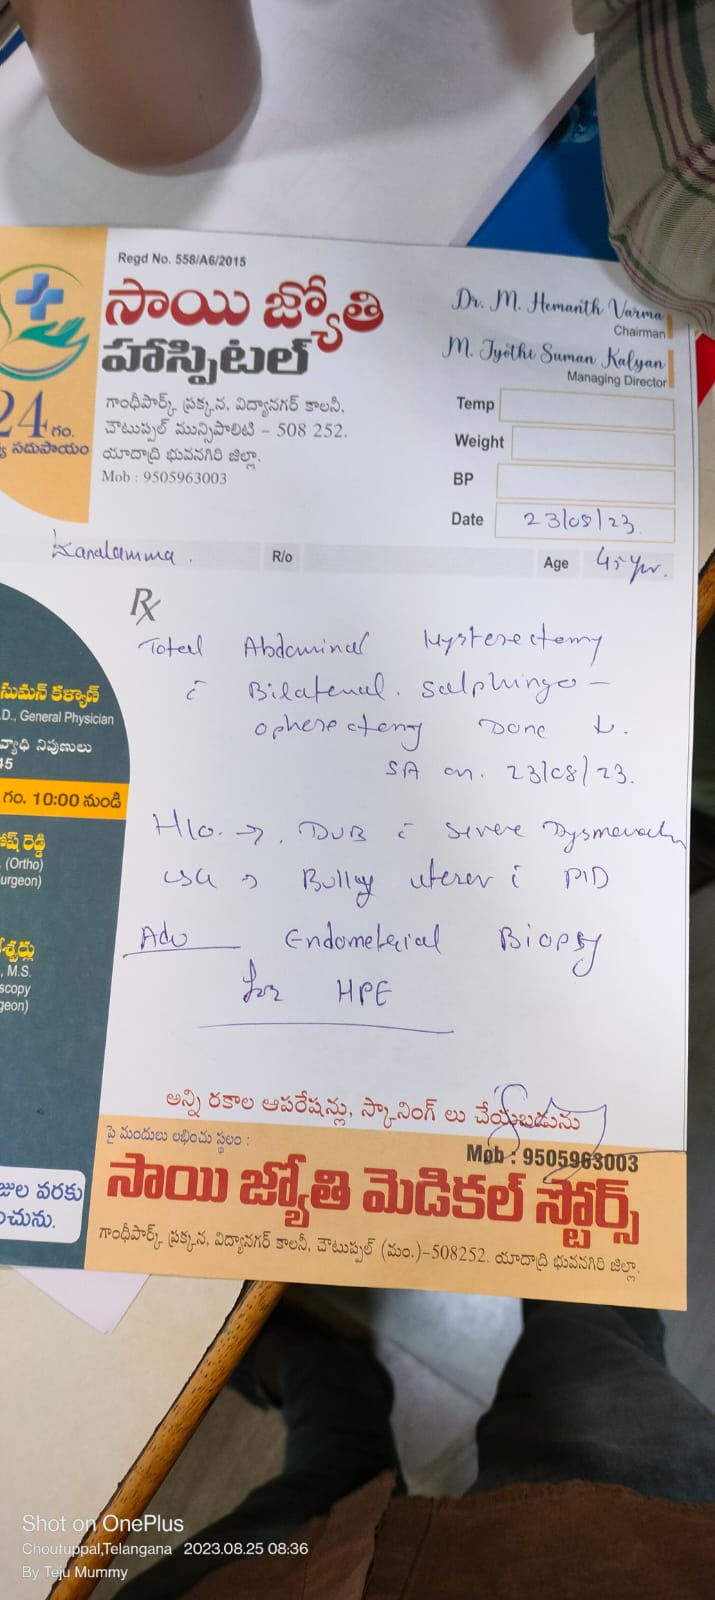 Regd No. 558/A6/2015
సాయి జ్యోతి
హాస్పిటల్
24 గం.
సదుపాయం
గాంధీపార్క్ ప్రక్కన, విద్యానగర్ కాలనీ,
చౌటుప్పల్ మున్సిపాలిటి - 508 252.
యాదాద్రి భువనగిరి జిల్లా.
Mob : 9505963003
Dr. M. Hemanth Varma
Chairman
M. Jyothi Suman Kalyan
Managing Director
Temp
Weight
BP
Date 23/08/23.
R/o
Age 45 yr.
Rx
Total Abdominal Hysterectomy
c̄ Bilateral. Salphingo -
opherectomy Done
SA on. 23/08/23.
H/o. → DUB c̄ severe
USG → Bulky uterus c̄ PID
Adv Endometrial Biopsy
for HPE
సుమన్ కళ్యాణ్
.D., General Physician
వ్యాధి నిపుణులు
45
గం. 10:00 నుండి
రెడ్డి
(Ortho)
urgeon)
, M.S.
scopy
geon)
వరకు
అన్ని రకాల ఆపరేషన్లు, స్కానింగ్ లు చేయబడును
పై మందులు లభించు స్థలం :
Mob : 9505963003
సాయి జ్యోతి మెడికల్ స్టోర్స్
గాంధీపార్క్ ప్రక్కన, విద్యానగర్ కాలనీ, చౌటుప్పల్ (మం.)-508252. యాదాద్రి భువనగిరి జిల్లా.
Shot on OnePlus
Choutuppal,Telangana 2023.08.25 08:36
By Teju Mummy